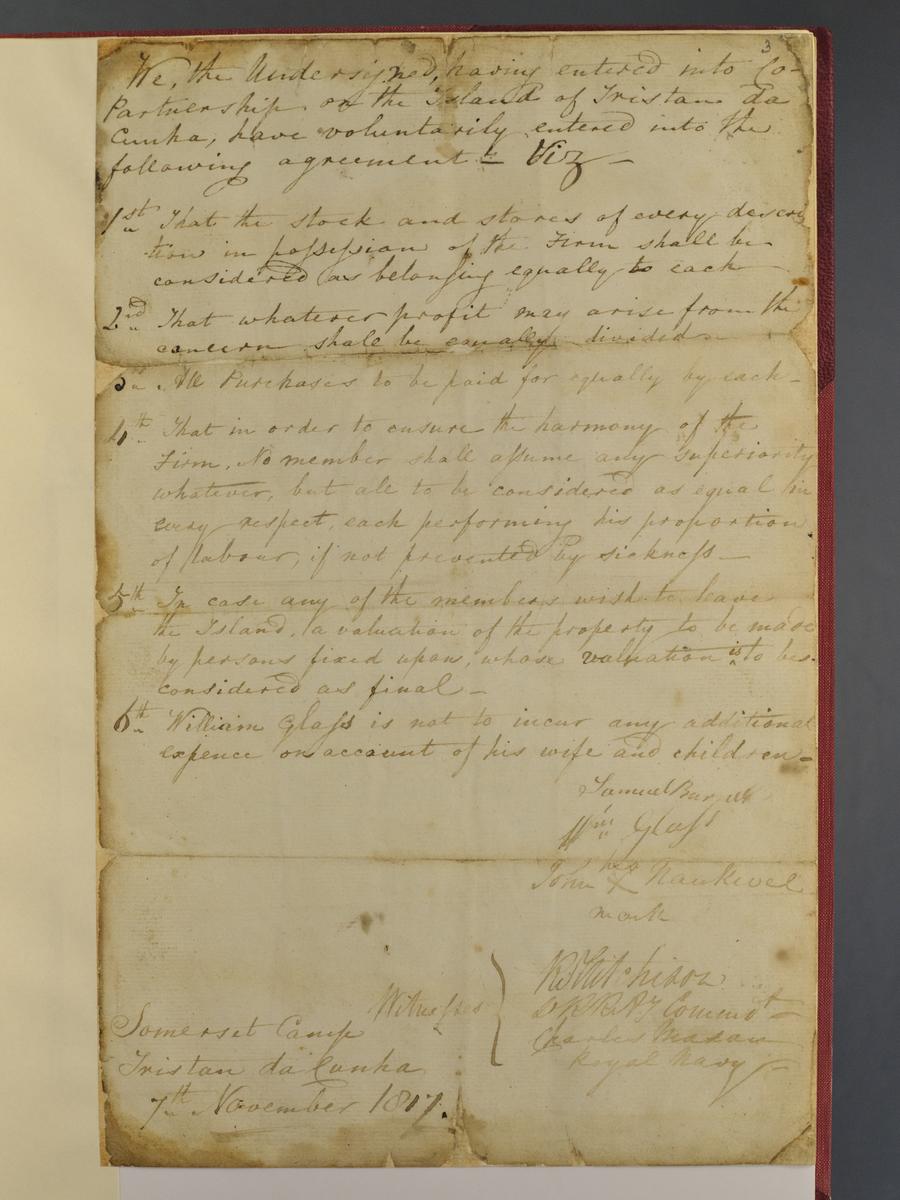 3
We, the Undersigned, having entered into Co-
Partnership on the Island of Tristan da
Cunha, have voluntarily entered into the
following agreement — Viz —
1st That the stock and stores of every descrip
tion in possession of the Firm shall be
considered as belonging equally to each —
2nd That whatever profit may arise from the
concern shall be equally divided —
3 All Purchases to be paid for equally by each —
4th That in order to ensure the harmony of the
Firm, No member shall assume any superiority
whatever, but all to be considered as equal in
every respect, each performing his proportion
of labour, if not prevented by sickness —
5th In case any of the members wish to leave
the Island, a valuation of the property to be made
by persons fixed upon, whose valuation is to be
considered as final —
6th William Glass is not to incur any additional
expence on account of his wife and children —
Samuel Burnell
Wm Glass
his
John X Nankivel
mark
Witnesses
Somerset Camp
Tristan da Cunha
7th November 1817.
Charles
Royal Navy